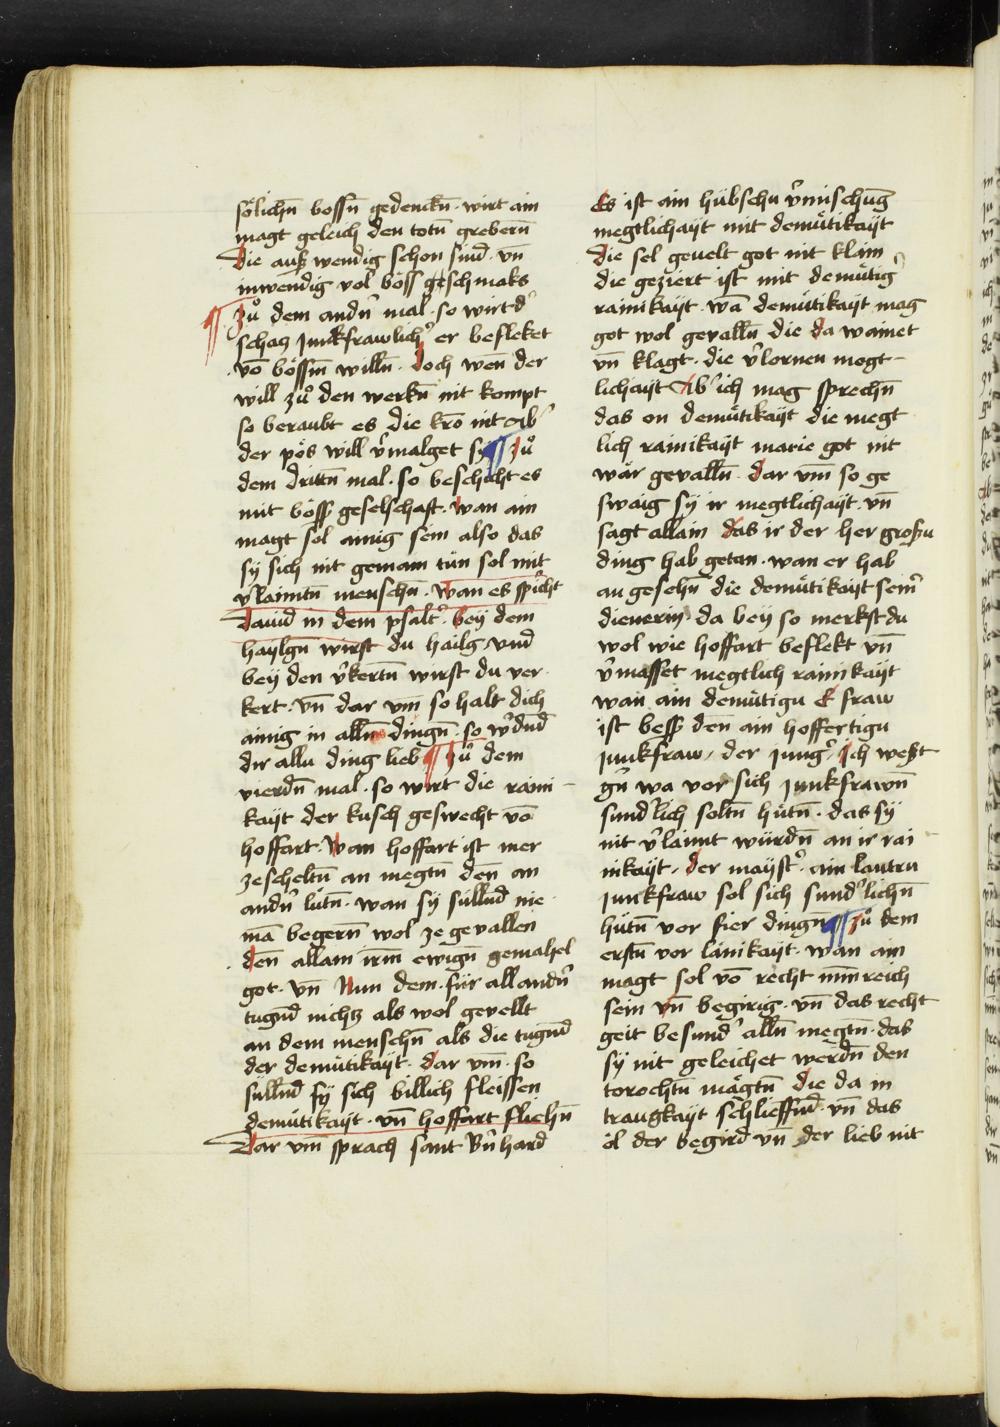 sölichn̄ bossn̄ gedenckn̄ · wirt ain
magt geleich den totn̄ grebern̄
die auß wendig schon sind · vn̄
inwendig vol böss geschmaks
¶ Zů dem andn̄ mal · so wirt d͛
schatz junkfrawlich͛ er befleket
vō bössm̄ willn̄ · doch wen̄ der
will zů den werkn̄ nit kompt
so beraubt es die krō nit Ab͛
der pös will v͛malget sy ¶ Zů
dem drittn̄ mal · so beschicht es
mit böss͛ geselschaft · wan ain
magt sol ainig sein also das
sy sich nit gemain tün sol mit
v͛laimtn̄ menschn̄ · wan es sp̄icht
Dauid in dem psalt͛ · bey dem
haylgn̄ wirst du hailg vnd
bey den v͛kertn̄ wirst du ver
kert · vn̄ dar vm̄ so halt dich
ainig in alln̄ dingn̄ · so w͛dnd
dir allu ding lieb ¶ Zů dem
vierdn̄ mal · so wirt die raini
kayt der kusch geswecht vō
hoffart · wan hoffart ist mer
ze scheltn̄ an megtn̄ den̄ an
andn̄ lütn̄ · wan sy sullnd nie
mā begern wol ze gevallen
den̄ allain irm̄ ewign̄ gemahel
got · vn̄ Nun dem · für all andn̄
tugnd nichtz als wol gevellt
an dem menschn̄ als die tugnd
der demütikayt · dar vm̄ · so
sullnd sy sich billich fleissen
demütikayt · vn̄ hoffart fliehn̄
Dar vm̄ sprach sant Bn̄hard
Es ist ain hübschu v͛mischūg
megtlichayt mit demütikayt
die sel gevelt got nit klain
die geziert ist mit demütig͛
rainikayt · wā demütikayt mag
got wol gevalln̄ die da wainet
vn̄ klagt · die v͛lornen megt
lichayt Ab͛ ich mag sprechn̄
das on demütikayt die megt
lich rainikayt marie got nit
wär gevalln̄ · dar vm̄ so ge
swaig sy ir megtlichayt · vn̄
sagt allain das ir der her großu
ding hab getan · wan er hab
an gesehn̄ die demütikayt sein͛
dienerin · da bey so merkst du
wol wie hoffart beflekt vn̄
v͛masset megtlich rainikayt
wan ain demütigu E fraw
ist bess͛ den̄ ain hoffertigu
junkfraw / der jung͛ / Ich west
gn̄ wa vor sich junkfrawn̄
sundlich soltn̄ hütn̄ · das sy
nit v͛laimt würdn̄ an ir rai
nikayt · der mayst͛ · ain lautru
junkfraw sol sich sund͛lichn̄
hütn̄ vor fier dingn̄ ¶ Zů dem
erstn̄ vor länikayt · wan ain
magt sol vō recht minreich
sein vn̄ begirig · vn̄ das recht
geit besund͛ alln̄ megtn̄ · das
sy nit geleichet werdn̄ den
torochtn̄ mägtn̄ die da in
traugkayt schlieffnd · vn̄ das
öl der begird vn̄ der lieb nit